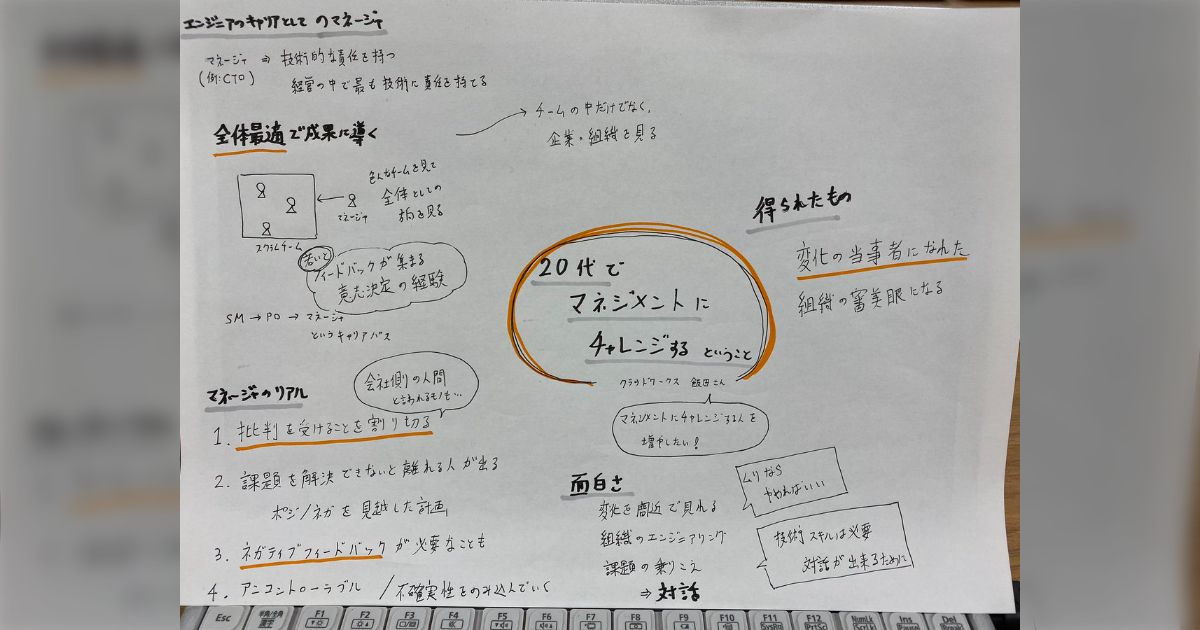 エンジニアのキャリアとしてのマネージャ
マネージャ ⇒ 技術的な責任を持つ
(例:CTO)
経営の中で最も技術に責任を持てる
全体最適で成果に導く
チームの中だけでなく、
企業・組織を見る
色んなチームを見て
全体としての
マネージャ
スクラムチーム
若いと
フィードバックが集まる
意志決定の経験
SM → PO → マネージャ
というキャリアパス
マネージャのリアル
会社側の人間
と言われるモノも…
1. 批判を受けることを割り切る
2. 課題を解決できないと離れる人が出る
ポジ/ネガを見越した計画
3. ネガティブフィードバックが必要なことも
4. アンコントローラブル/不確実性をのみ込んでいく
20代で
マネジメントに
チャレンジするということ
クラウドワークス 飯田さん
マネジメントにチャレンジする人を
増やしたい!
得られたもの
変化の当事者になれた
組織の審美眼になる
面白さ
変化を間近で見れる
組織のエンジニアリング
課題の乗りこえ
⇒対話
ムリなら
やめればいい
技術スキルは必要
対話が出来るために
Esc
半角/全角
漢字
F1
F2
F3
F4
F5
F6
F7
F8
F9
F10
F11
SysRq
F12
PrtSc
NumLk
ScrLk
Ins
Pause
Del
Break